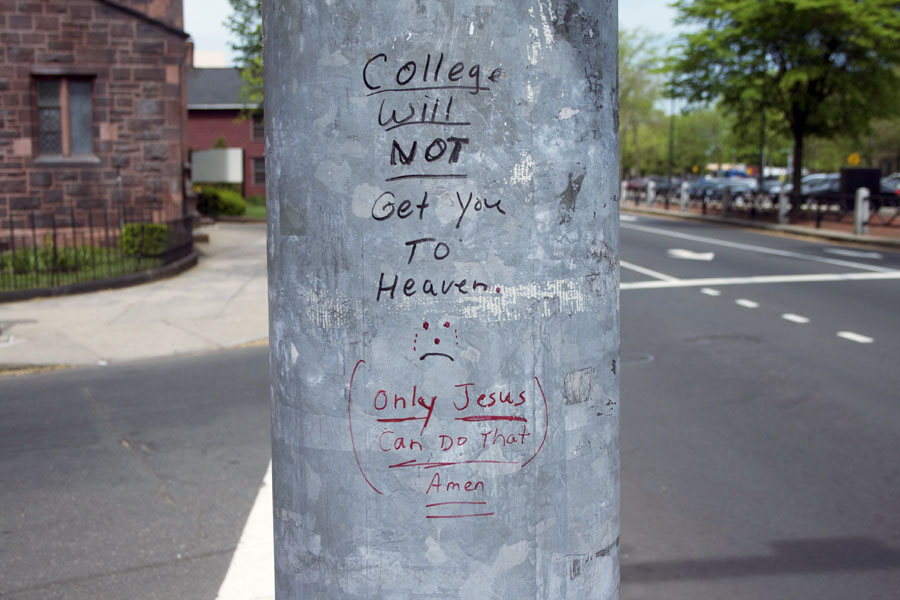 College
Will
NOT
Get You
To
Heaven.
(Only Jesus
Can Do That)
Amen